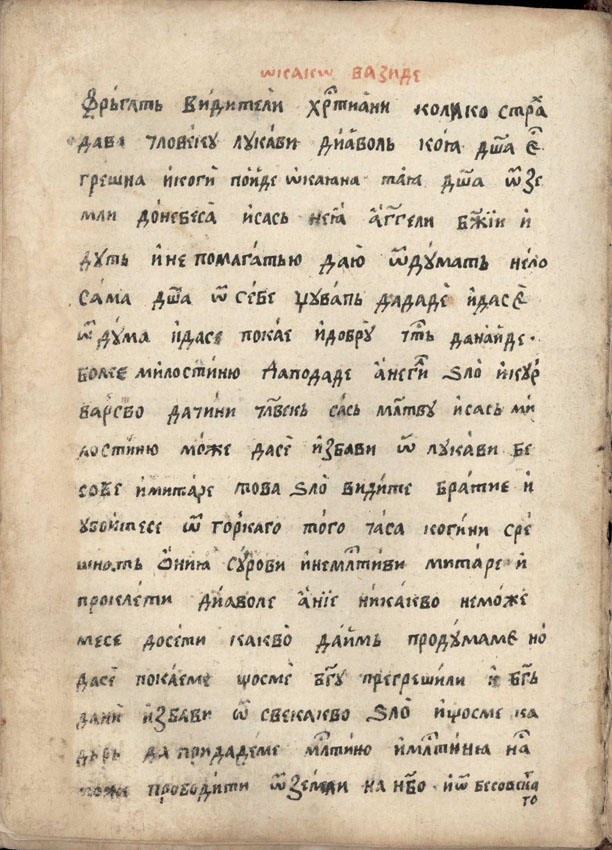 ѡкакѡ вазиде
фрьгать видители хр҇тиани колико стра҇
дава тловеку лукави диаволь коꙗ дш҃а е҇
грешна и коги поиде ѡкаꙗна таꙗ дш҃а ѿ зе
мли до небеса и сась неꙗ агг҃ели бж҃їи и
дуть и не помагатью даю ѿдумать нело
сама дш҃а ѿ себе що дададе и да се
ѿдума и да се покае и добру да наиде.
более милостиню да подаде а неги ѕло и кур
варьво да тини тл҃векь сась мл҃тву и сась ми
лостиню може да се избави ѿ лукави бе
сове и митаре това ѕло видите братие и
убоите се ѿ торкаго того таса когини сре
шнать ониꙗ сурови и немл҃тиви митаре и
проклети диаволе а нїе никакво неможе
месе досети какво даимь продумаме но
да се покаеме щосме бг҃у прегрешили и бг҃ь
да ни избави ѿ свекакво ѕло и щосме ка
дьрь да придадеме мл҃тиню и мл҃тинꙗ на҇
може проводити ѿ земли на нб҃о и ѿ бесовска
то